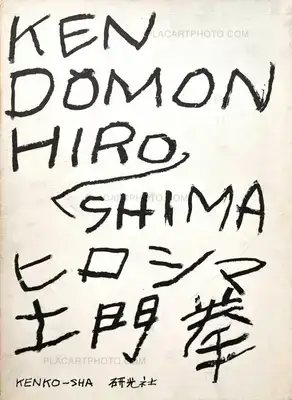 PLACARTPHOTO.COM
KEN
DOMON
HIRO
SHIMA
ヒロシマ
土門拳
PLACARTPHOTO.COM
KENKO-SHA 研光社